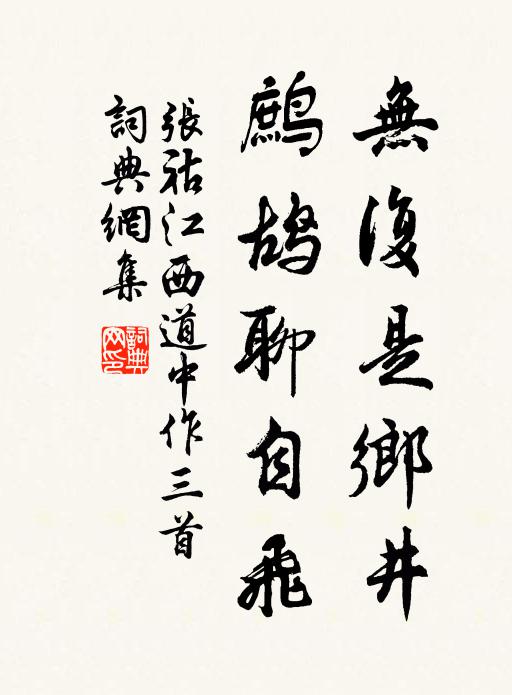 無復是鄉井
鷓鴣聊自飛
張祜江西道中作三首
詞典網集
詞典網印